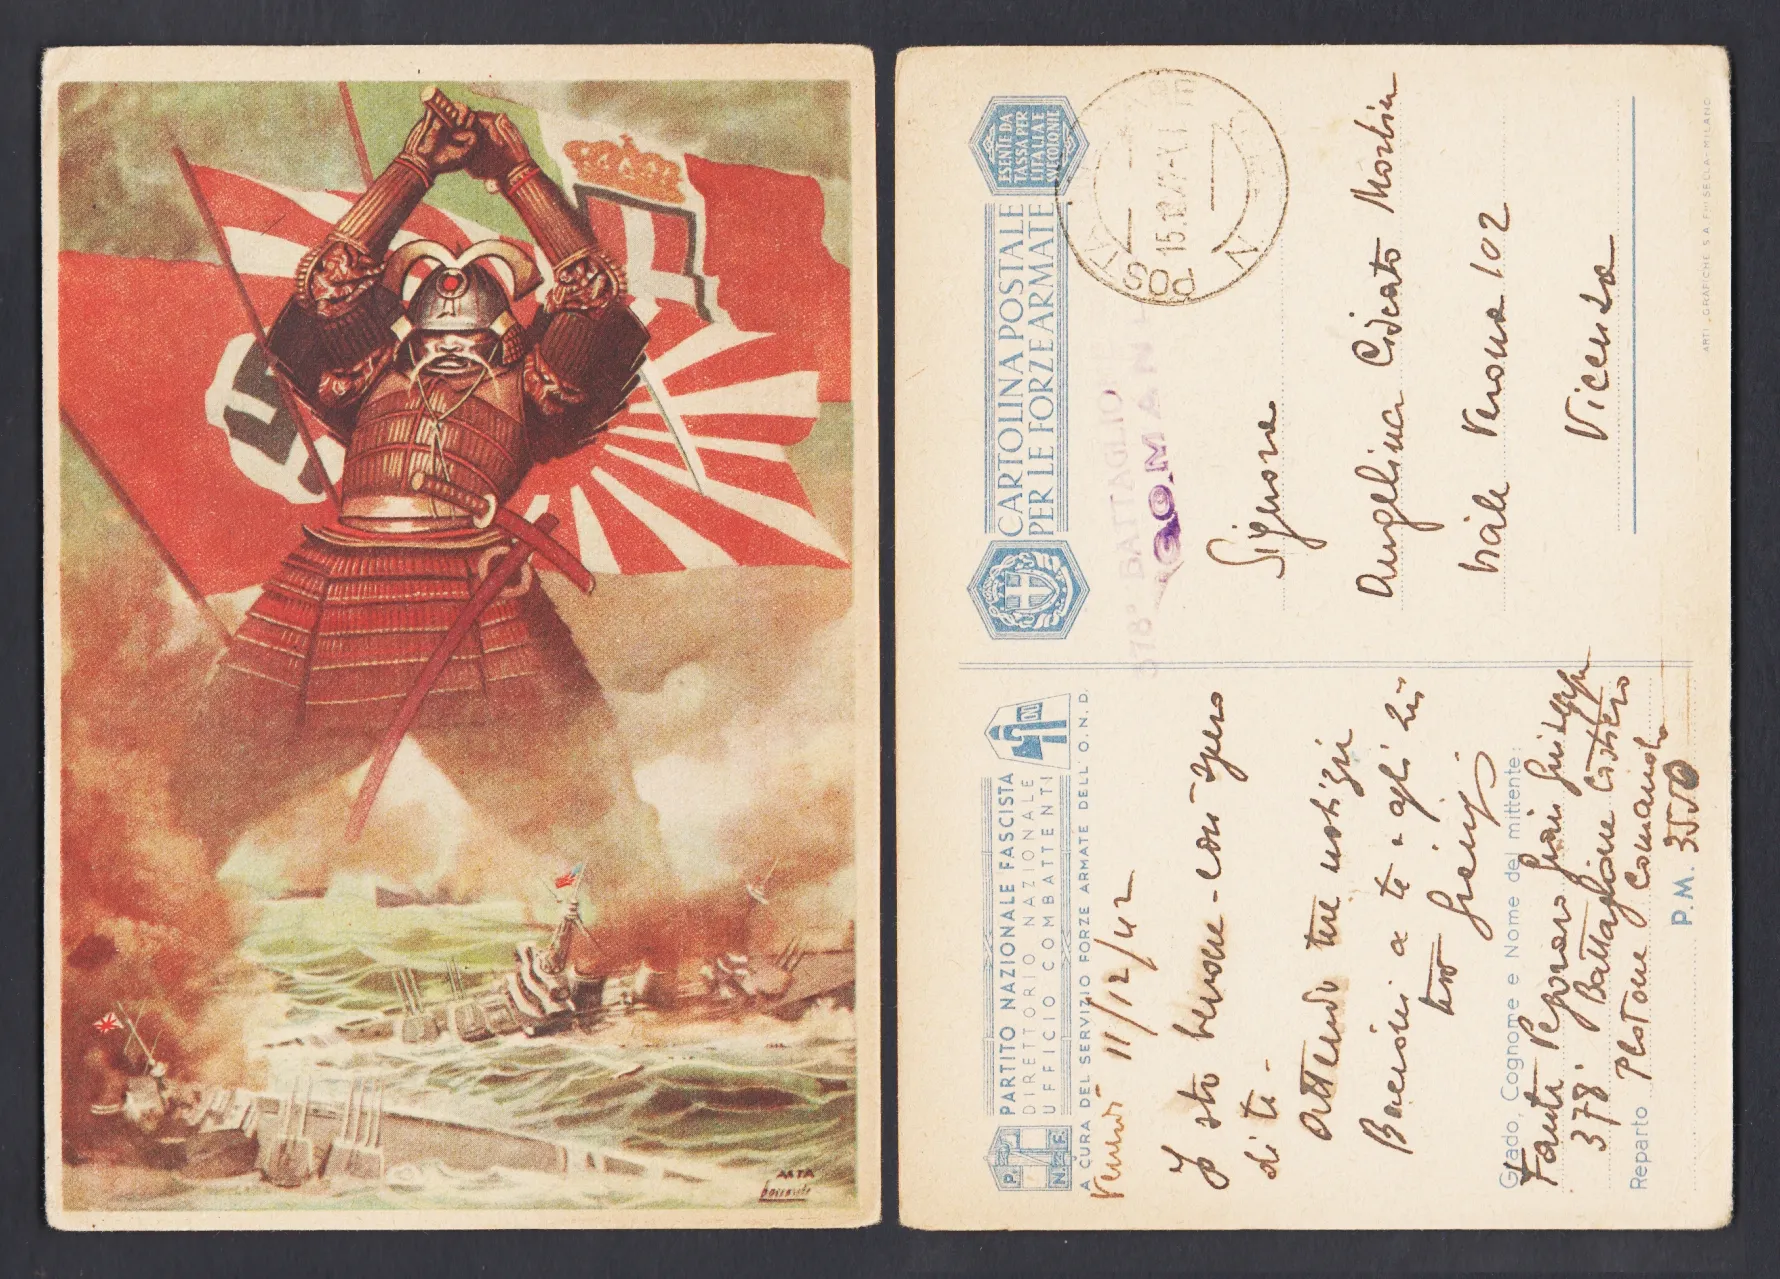 ASTA
boccasile
ESENTE DA
TASSA PER
L'ITALIA E
SUE COLONIE
CARTOLINA POSTALE
PER LE FORZE ARMATE
POSTA
15.12.
N
378° BATTAGLIO
COMAN
Signora
Angelina
Viale Verona 102
Vicenza
ARTI GRAFICHE S.A. PIZZI - MILANO
P. N. F.
PARTITO NAZIONALE FASCISTA
DIRETTORIO NAZIONALE
UFFICIO COMBATTENTI
A CURA DEL SERVIZIO FORZE ARMATE DELL'O.N.D.
Venerdì 11/12/42
Io sto benone - così spero
di te -
Attendo tue notizie
Bacioni a te e agli
Grado, Cognome e Nome del mittente:
Fante Giuseppe
378° Battaglione Costiero
Reparto Plotone Comando
P. M. 3550